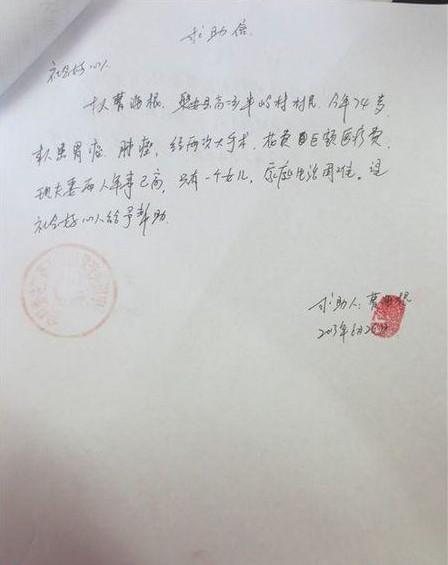 求助信
社会好心人
本人曹海根，磐安县高二乡半岭村村民，今年74岁
本人患胃癌、肺癌，经两次大手术，花费巨额医疗费
现夫妻两人年事已高，只有一个女儿，家庭生活困难。望
社会好心人给予帮助
求助人：曹海根
2013年6月26日